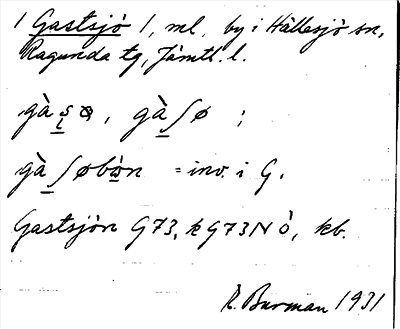 1 Gastsjö 1, ml, by i Hällesjö sn,
Ragunda tg, Jämtl. l.
gà ʃø ;
gà ʃøbòn = inv. i G.
Gastsjön G73, k G73 N Ö, kb.
R. Burman 1931